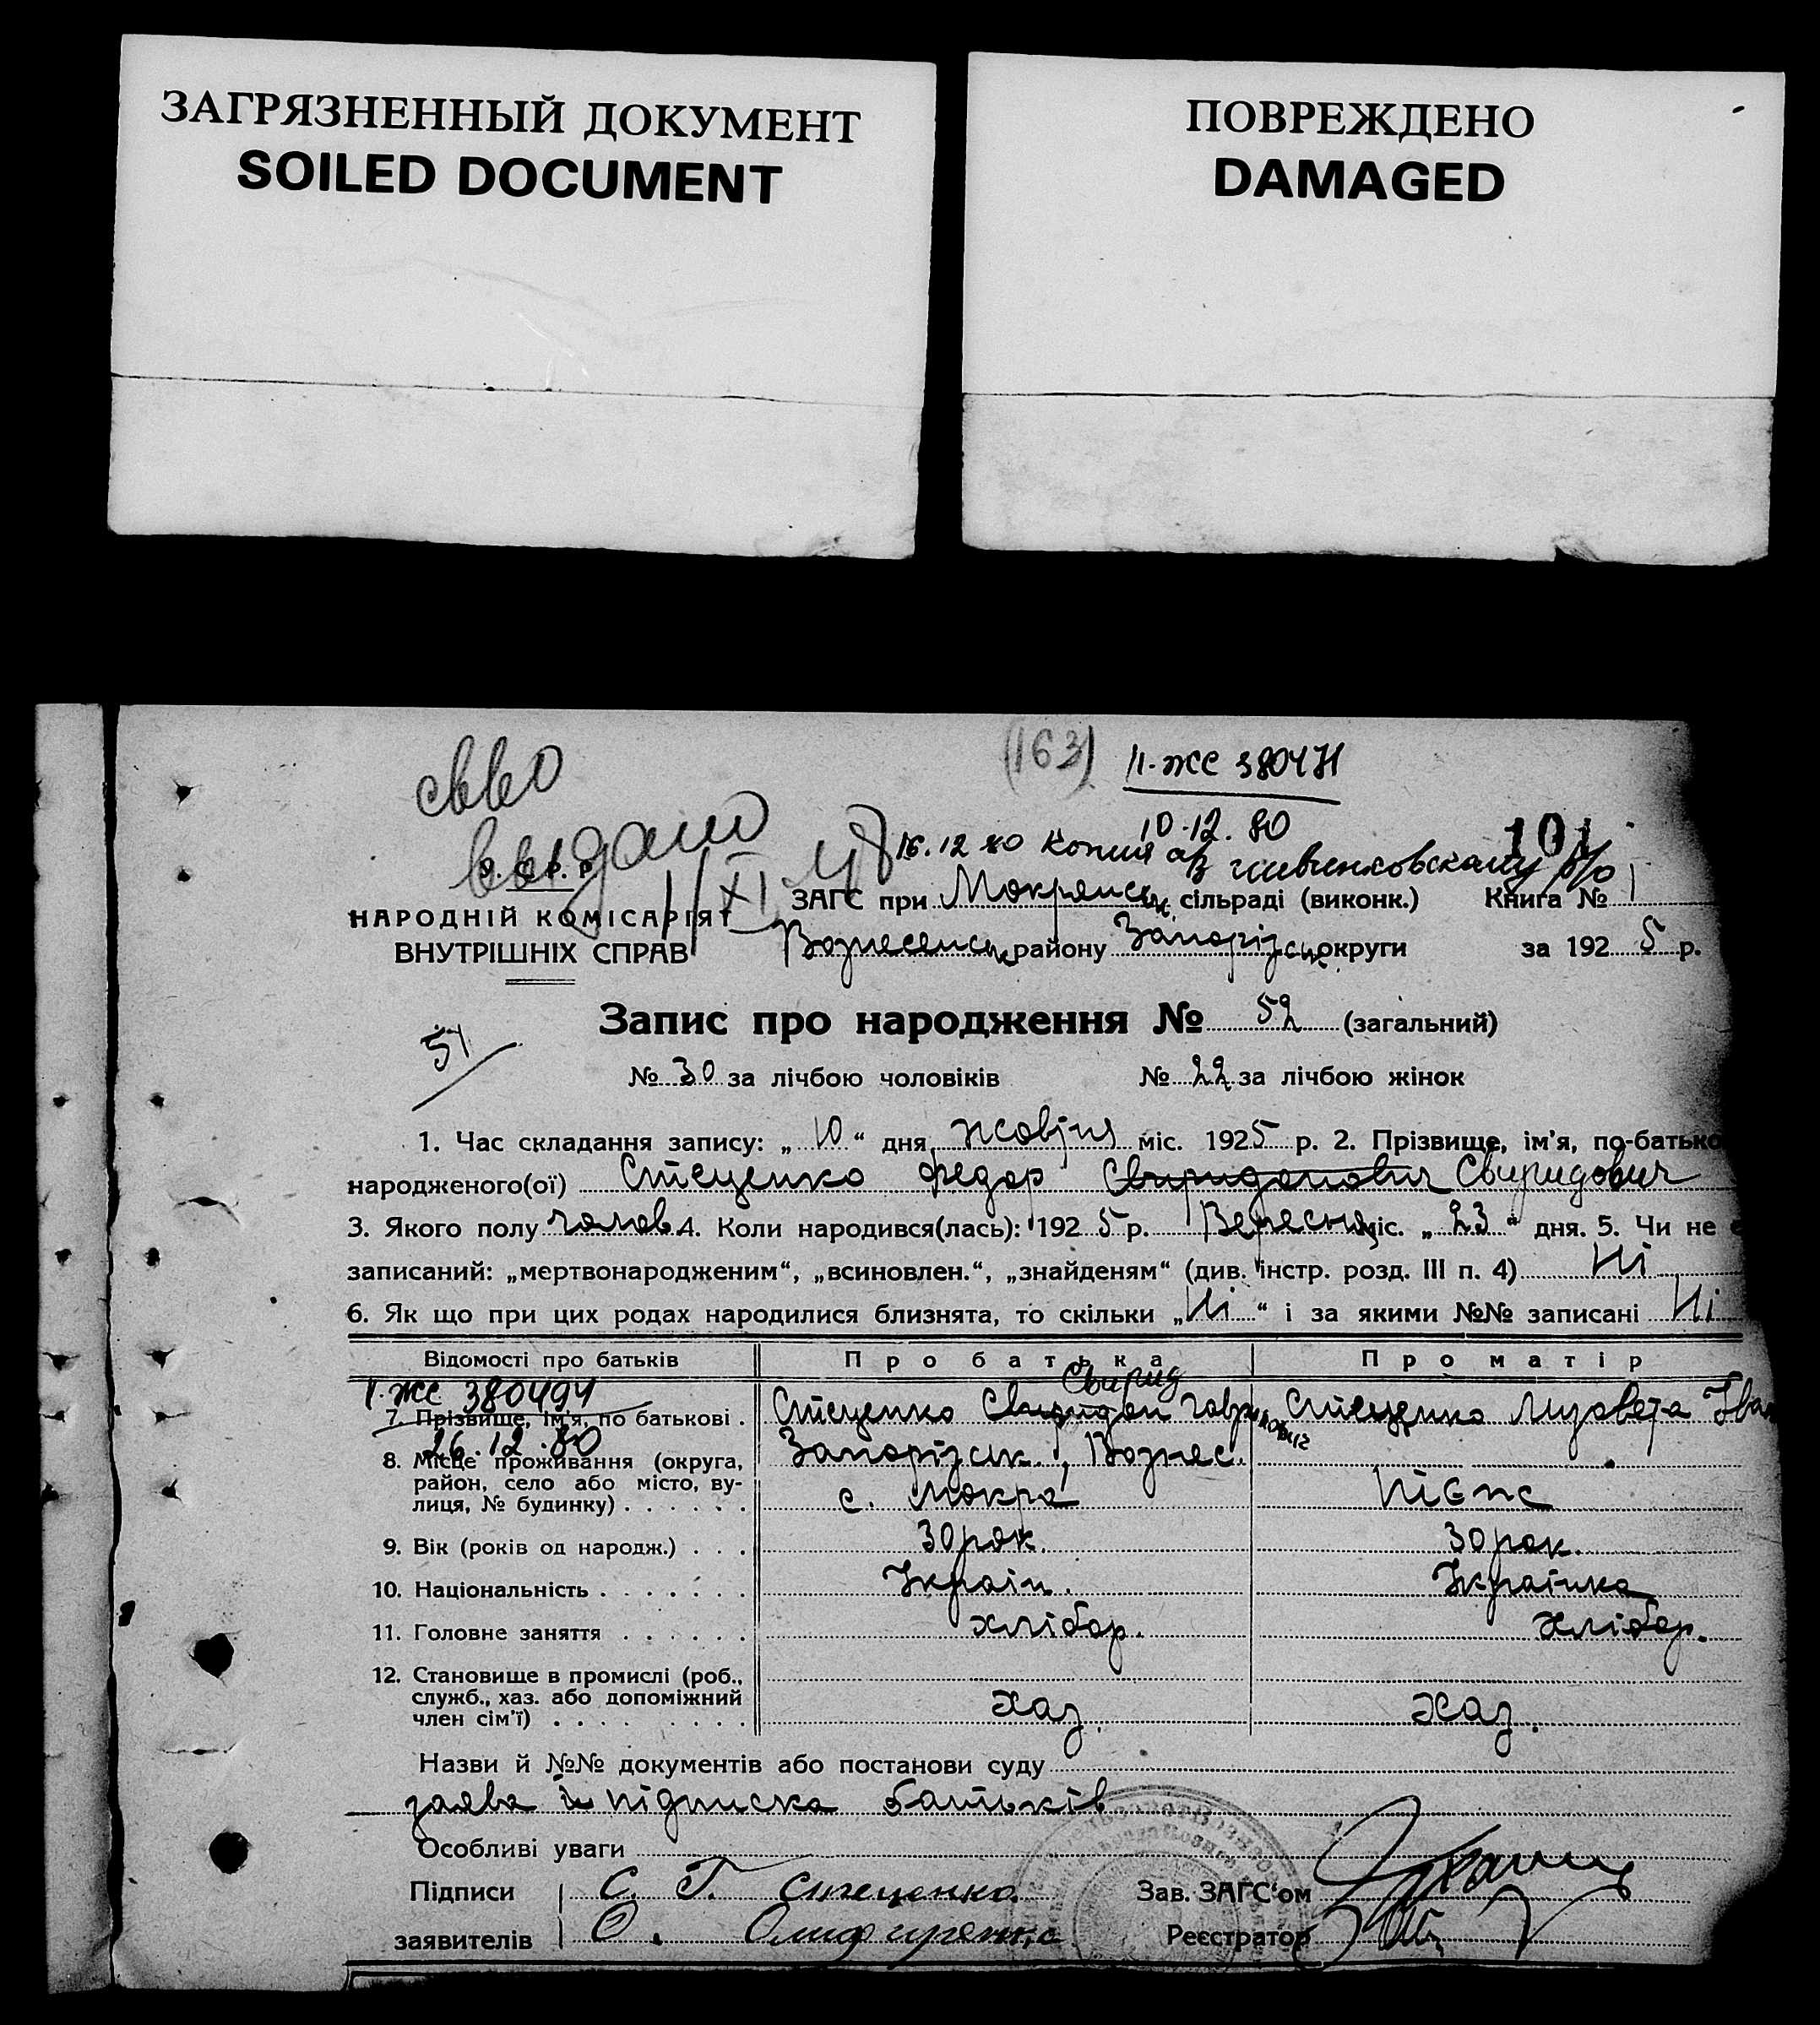 ЗАГРЯЗНЕННЫЙ ДОКУМЕНТ
SOILED DOCUMENT
ПОВРЕЖДЕНО
DAMAGED
(163)
II-ЖС 380471
10.12.80
свво
выдано
XI
16.12.80 Копия
101
У. С. Р. Р.
НАРОДНІЙ КОМІСАРІЯТ
ВНУТРІШНІХ СПРАВ
ЗАГС при Мокрянськ. сільраді (виконк.) Книга № 1
Вознесенськ району Запорізськ. округи за 1925 р.
Запис про народження № 52 (загальний)
51
№ 30 за лічбою чоловіків № 22 за лічбою жінок
1. Час складання запису: „10“ дня жовтня міс. 1925 р. 2. Прізвище, ім'я, по-батько
народженого(ої) Стеценко Федор Свиридонович Свиридович
3. Якого полу чолов. 4. Коли народився(лась): 1925 р. Вересня міс. „23“ дня. 5. Чи не є
записаний: „мертвонародженим“, „всиновлен.“, „знайденям“ (див. інстр. розд. III п. 4) Ні
6. Як що при цих родах народилися близнята, то скільки „Ні“ і за якими №№ записані Ні
Відомості про батьків Про батька Про матір
II-ЖС 380494
Свирид
7. Прізвище, ім'я, по батькові . Стеценко Свиридон Стеценко Лизавета Іван
26.12.80
8. Місце проживання (округа, Запорізськ., Вознес.
район, село або місто, ву-
лиця, № будинку) . . . . . . с. Мокра
9. Вік (років од народж.) . . . 30 рок. 30 рок.
10. Національність . . . . . . . Україн. Українка
11. Головне заняття . . . . . . хлібор. хлібор.
12. Становище в промислі (роб.,
служб., хаз. або допоміжний
член сім'ї) . . . . . . . . . хаз. хаз.
Назви й №№ документів або постанови суду
заява й підписка батьків
Особливі уваги
Підписи С. Г. Стеценко Зав. ЗАГС'ом
заявителів О. Олифиренко Реєстратор